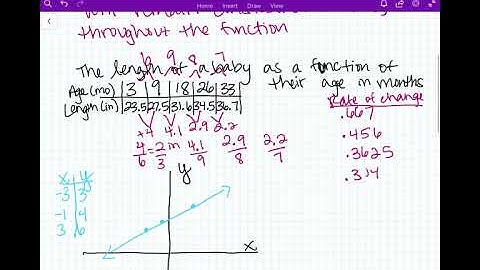 Home Insert Draw View
throughout the function
6 9 8 7
The length of a baby as a function of
their age in months
Age (mo) 3 9 18 26 33
Length (in) 23.5 27.5 31.6 34.5 36.7
+4 4.1 2.9 2.2
4/6 = 2/3 in 4.1/9 2.9/8 2.2/7
Rate of change
.667
.456
.3625
.314
x y
-3 3
-1 4
3 6
y
x